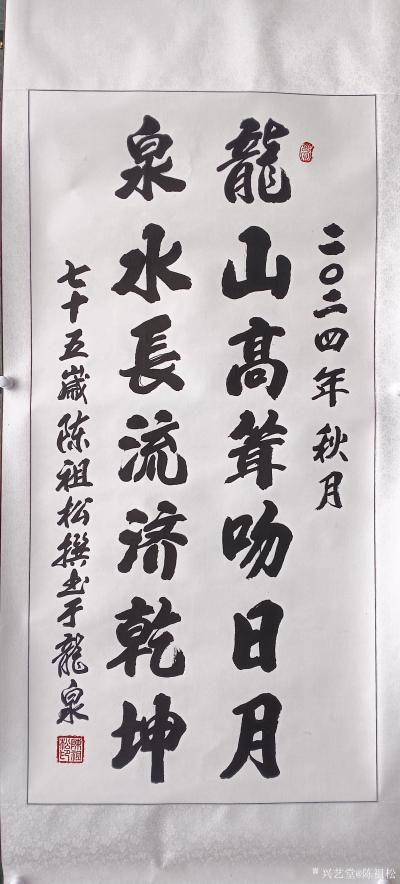 二〇二四年秋月
龍山高耸吻日月
泉水長流济乾坤
七十五嵗陈祖松撰书于龍泉
陳祖松印
兴艺堂@陈祖松